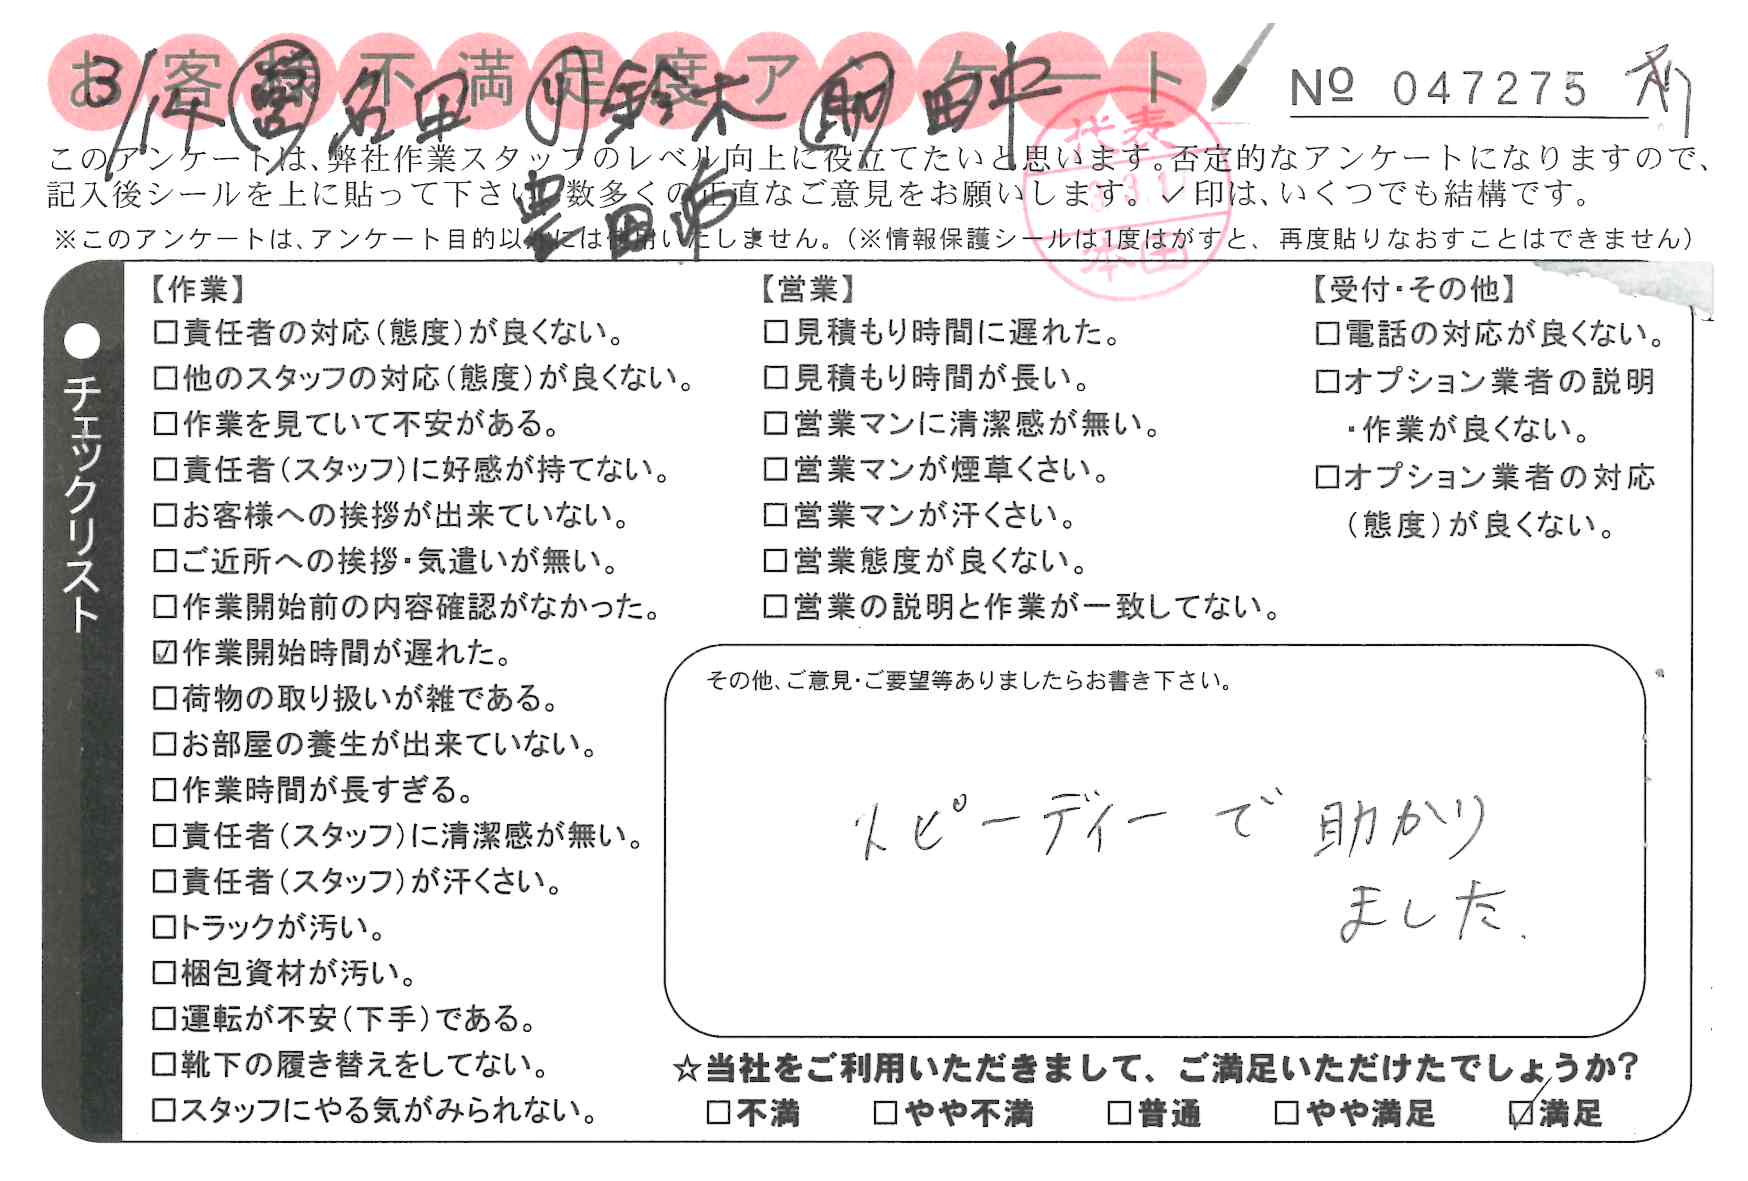 お客様不満足度アンケート
3/14 営 名田 リ 鈴木 助 田中
豊田市
№ 047275
代表
本田
このアンケートは、弊社作業スタッフのレベル向上に役立てたいと思います。否定的なアンケートになりますので、
記入後シールを上に貼って下さい。数多くの正直なご意見をお願いします。✓印は、いくつでも結構です。
※このアンケートは、アンケート目的以外には使用いたしません。(※情報保護シールは1度はがすと、再度貼りなおすことはできません)
●チェックリスト
【作業】
□責任者の対応(態度)が良くない。
□他のスタッフの対応(態度)が良くない。
□作業を見ていて不安がある。
□責任者(スタッフ)に好感が持てない。
□お客様への挨拶が出来ていない。
□ご近所への挨拶・気遣いが無い。
□作業開始前の内容確認がなかった。
☑作業開始時間が遅れた。
□荷物の取り扱いが雑である。
□お部屋の養生が出来ていない。
□作業時間が長すぎる。
□責任者(スタッフ)に清潔感が無い。
□責任者(スタッフ)が汗くさい。
□トラックが汚い。
□梱包資材が汚い。
□運転が不安(下手)である。
□靴下の履き替えをしてない。
□スタッフにやる気がみられない。
【営業】
□見積もり時間に遅れた。
□見積もり時間が長い。
□営業マンに清潔感が無い。
□営業マンが煙草くさい。
□営業マンが汗くさい。
□営業態度が良くない。
□営業の説明と作業が一致してない。
【受付・その他】
□電話の対応が良くない。
□オプション業者の説明
・作業が良くない。
□オプション業者の対応
(態度)が良くない。
その他、ご意見・ご要望等ありましたらお書き下さい。
スピーディーで助かり
ました.
☆当社をご利用いただきまして、ご満足いただけたでしょうか?
□不満 □やや不満 □普通 □やや満足 ☑満足